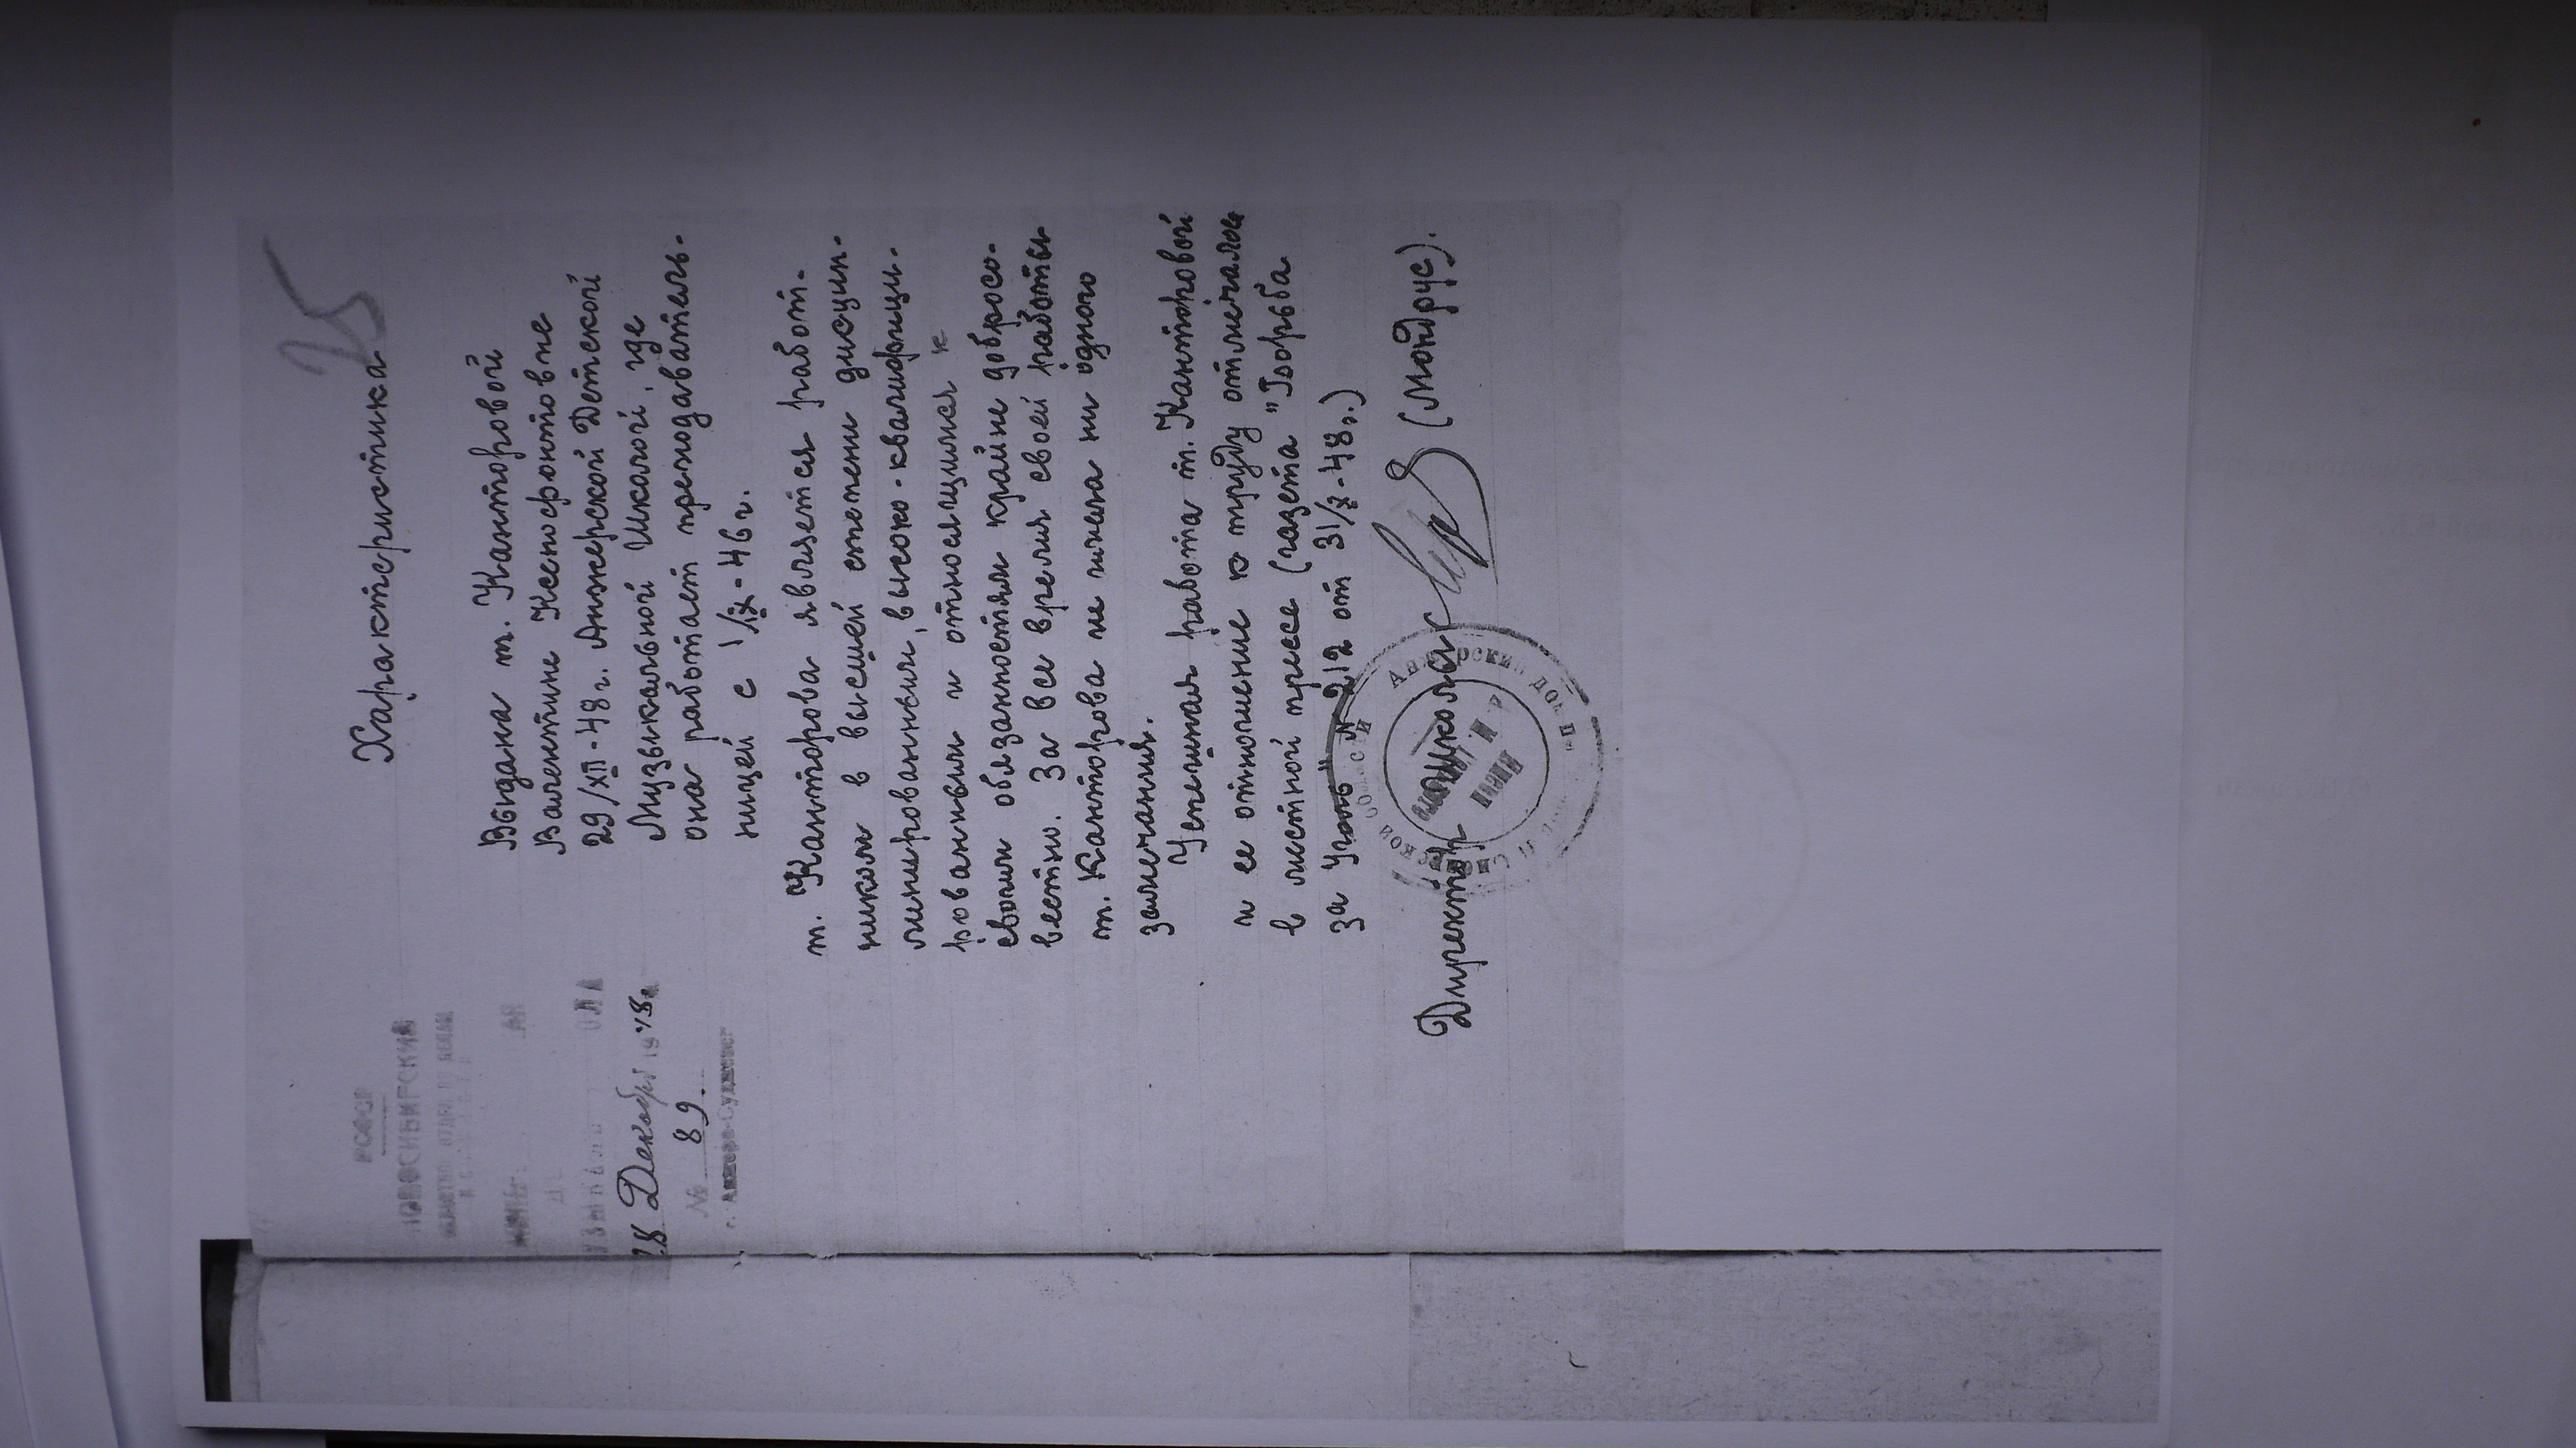 25
РСФСР
НОВОСИБИРСКИЙ
28 Декабря 1948г.
№ 89.
г. Анжеро-Судженск
Характеристика
Выдана т. Канторовой
Валентине Ксенофонтовне
29/XII-48г. Анжерской Детской
Музыкальной Школой, где
она работает преподаватель-
ницей с 1/IX-46г.
т. Канторова является работ-
ником в высшей степени дисцип-
линированным, высоко-квалифици-
рованным и относящимся к
своим обязанностям крайне добросо-
вестно. За все время своей работы
т. Канторова не имела ни одного
замечания.
Успешная работа т. Канторовой
и ее отношение к труду отмечалось
в местной прессе (газета "Борьба
за Уголь" № 212 от 31/X-48г.)
Директор школы (Мондрус).
Анжерский
области